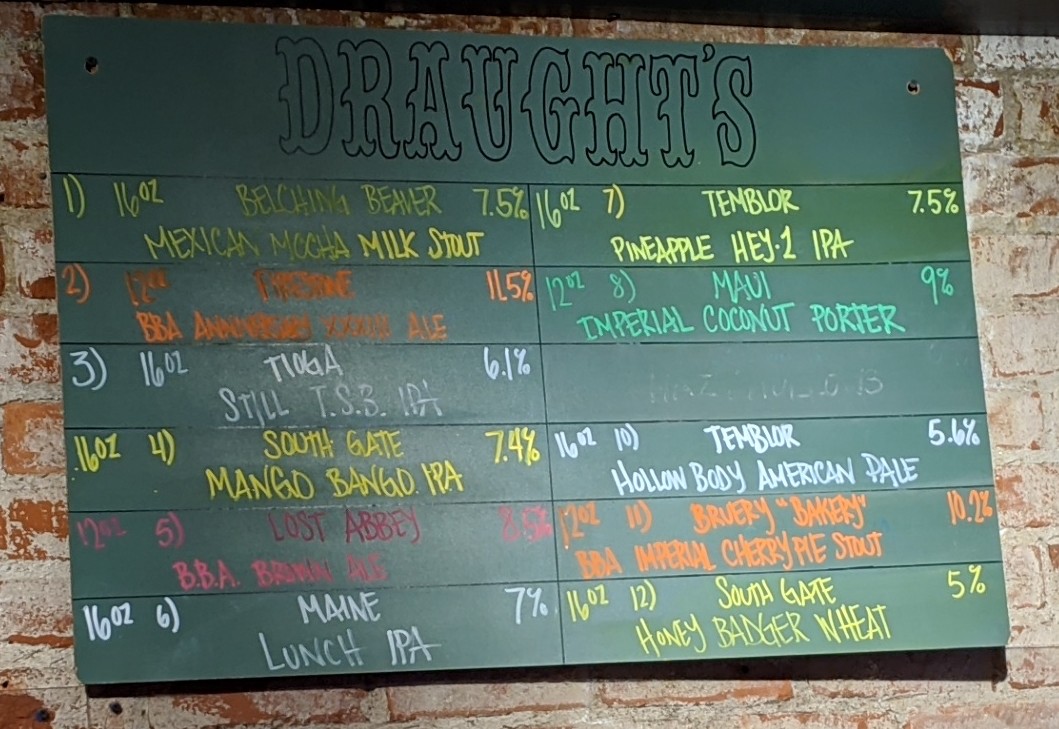 DRAUGHT'S
1) 16OZ BELCHING BEAVER 7.5%
MEXICAN MOCHA MILK STOUT
2) 12OZ FIRESTONE 11.5%
BBA ANNIVERSARY ALE
3) 16OZ TIOGA 6.1%
STILL T.S.B. IPA
16OZ 4) SOUTH GATE 7.4%
MANGO BANGO IPA
12OZ 5) LOST ABBEY 8.5%
B.B.A. BROWN ALE
16OZ 6) MAINE 7%
LUNCH IPA
16OZ 7) TEMBLOR 7.5%
PINEAPPLE HEY-1 IPA
12OZ 8) MAUI 9%
IMPERIAL COCONUT PORTER
16OZ 10) TEMBLOR 5.6%
HOLLOW BODY AMERICAN PALE
12OZ 11) BRUERY "BAKERY" 10.2%
BBA IMPERIAL CHERRY PIE STOUT
16OZ 12) SOUTH GATE 5%
HONEY BADGER WHEAT